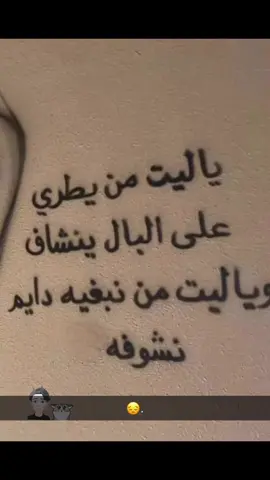 ياليت من يطري
على البال ينشاف
وياليت من نبغيه دايم
نشوفه
😔.